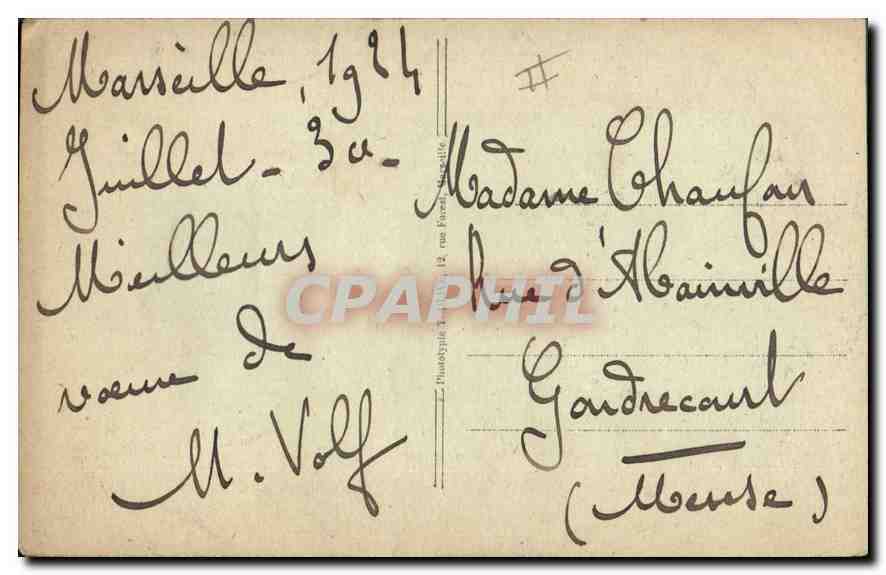 Marseille, 1924
Juillet - 30 -
Meilleurs
vœux de
M. Volf
II
Madame Thaufour
Rue d'Abainville
Gondrecourt
(Meuse)
12, rue Farest, Marseille.
Phototypie
CPAPHIL